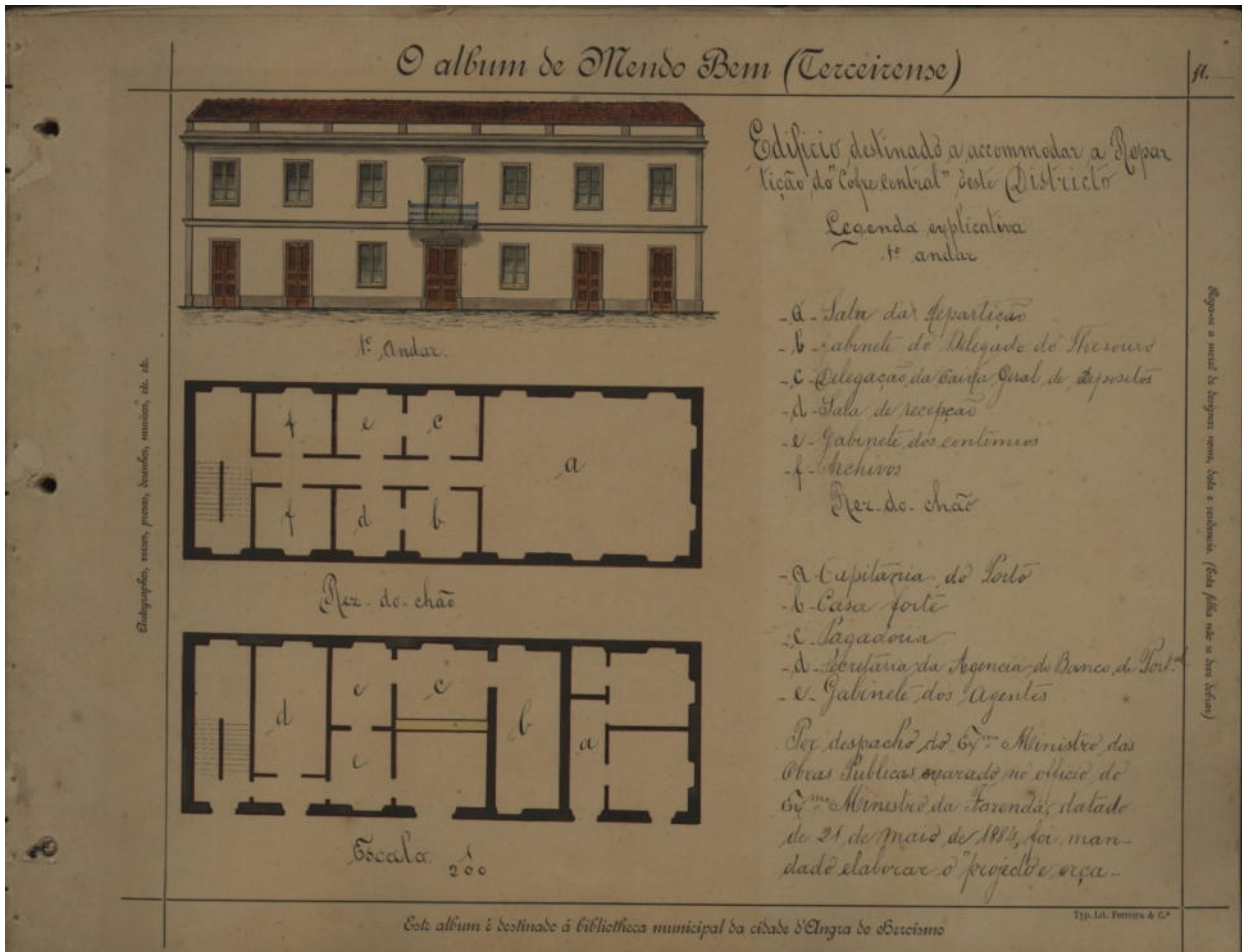 O album de Mendo Bem (Terceirense)
fl.
1º Andar.
f e c
a
f d b
Rez-do-chão
d e c b a
e
Escala 1/200
Edificio destinado a accommodar a Repar
tição do "Cofre Central" deste Districto
Legenda explicativa
1º andar
-a- Sala da Repartição
-b- Gabinete do Delegado do Thesouro
-c- Delegação da Caixa Geral de Depositos
-d- Sala de recepção
-e- Gabinete dos contínuos
-f- Archivos
Rez-do-chão
-a- Capitania do Porto
-b- Casa forte
-c- Pagadoria
-d- Secretaria da Agencia do Banco de Port.al
-e- Gabinete dos Agentes
Por despacho do Exmo Ministro das
Obras Publicas exarado no officio do
Exmo Ministro da Fazenda, datado
de 21 de maio de 1884, foi man-
dado elaborar o projecto e orça-
Autographos, versos, prosas, desenhos, musicas, etc. etc.
Roga-se a mercê de designar nome, data e residencia. (Esta folha não se deve dobrar)
Typ. Lit. Ferreira & C.ª
Este album é destinado á bibliotheca municipal da cidade d'Angra do Heroismo